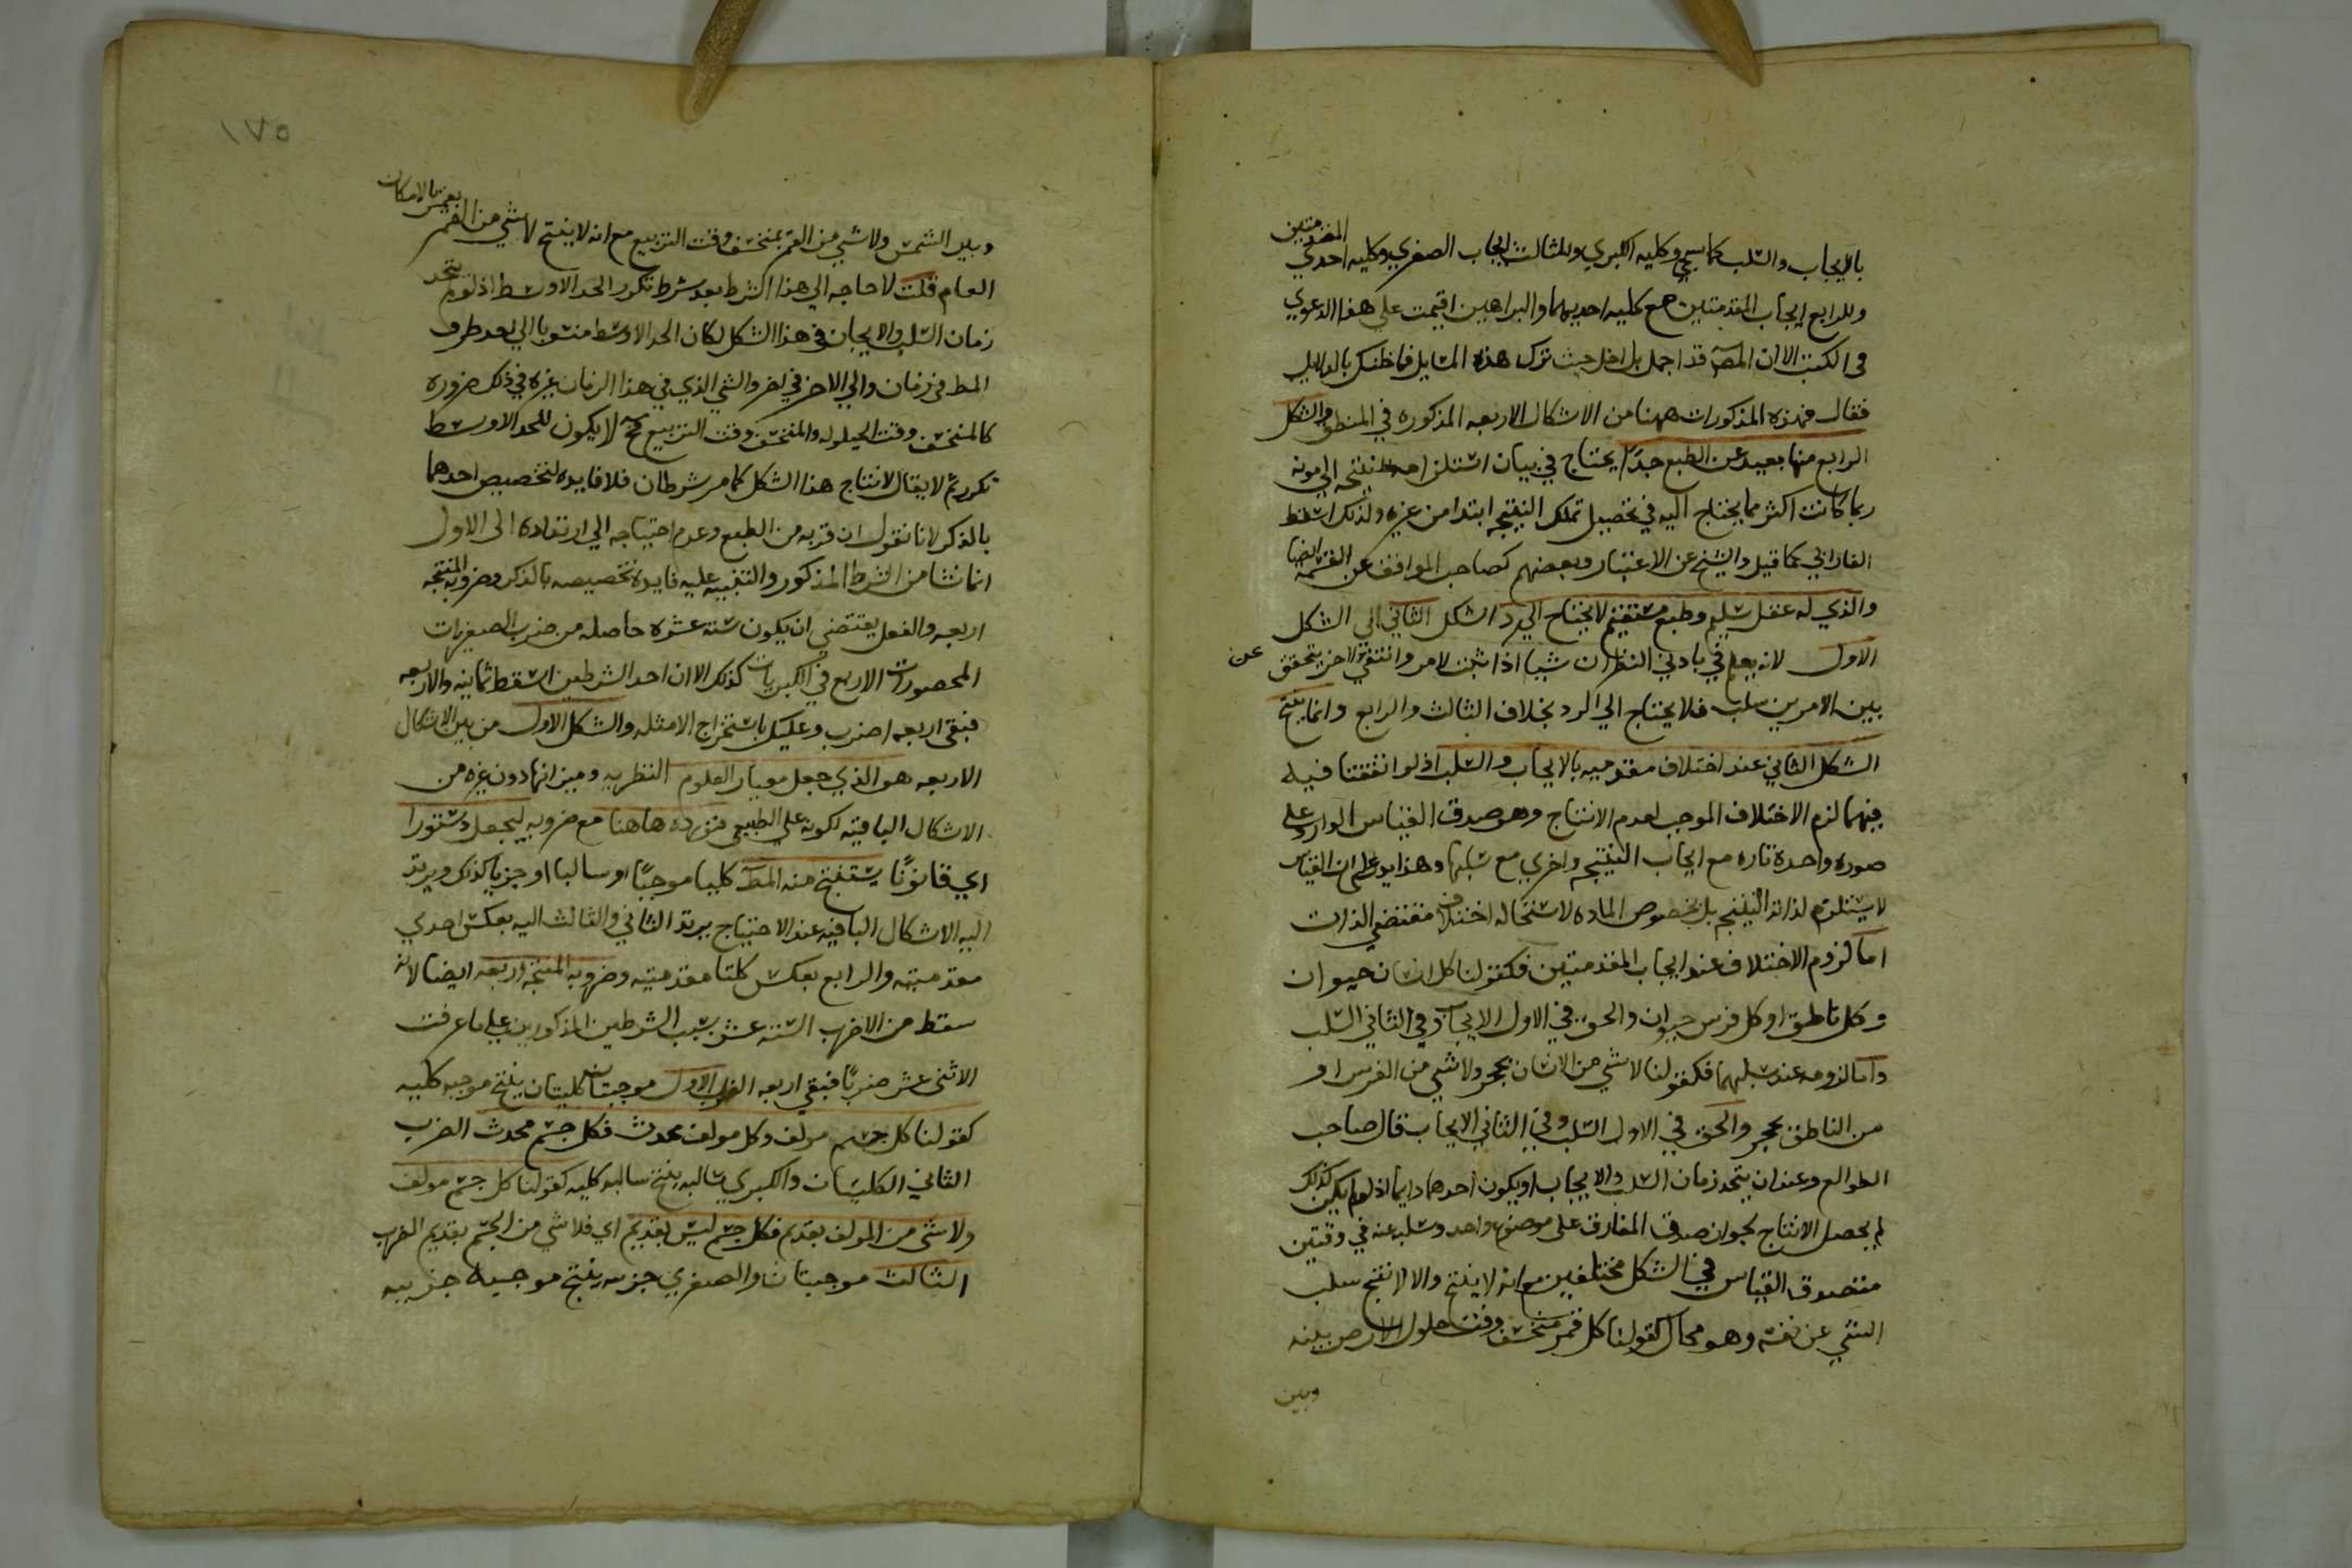 بالايجاب والسلب كما سيجي وكليه الكبري وللثالث ايجاب الصغري وكليه احدي المقدمتين
وللرابع ايجاب المقدمتين مع كليه احديهما والبراهين اقيمت علي هذا الدعوي
في الكتب الا ان المصـ قد اجمل بل اخل حيث ترك هذه المسايل فما ظنك بالدلايل
فقال فهذه المذكورات ههنا من الاشكال الاربعه المذكوره في المنطق والشكل
الرابع منها بعيد عن الطبع جدًا يحتاج في بيان استلزامه للنتيجه الي مونه
ربما كانت اكثر مما يحتاج اليه في تحصيل تلك النتيجه ابتدا من غيره ولذلك اسقط
الفارابي كما قيل والشيخ عن الاعتبار وبعضهم كصاحب المواقف عن القسمه ايضا
والذي له عقل سليم وطبع مستقيم لا يحتاج الي رد الشكل الثاني الي الشكل
الاول لانه يعلم في بادي النظر ان شيا اذا ثبت لامر وانتفي عن الاخر يتحقق
بين الامرين سلب فلا يحتاج الي الرد بخلاف الثالث والرابع وانما ينتج
الشكل الثاني عند اختلاف مقدميه بالايجاب والسلب اذ لو اتفقتا فيه
فيهما لزم الاختلاف الموجب لعدم الانتاج وهو صدق القياس الوارد علي
صوره واحدة تاره مع ايجاب النتيجه واخري مع سلبها وهذا يدل علي ان القياس
لا يستلزم لذاته النتيجه بل بخصوص الماده لاستحاله اختلاف مقتضي الذات
اما لزوم الاختلاف عند ايجاب المقدمتين فكقولنا كل انسان حيوان
وكل ناطق او كل فرس حيوان والحق في الاول الايجاب وفي الثاني السلب
واما لزومه عند سلبهما فكقولنا لا شي من الانسان بحجر ولا شي من الفرس او
من الناطق بحجر والحق في الاول السلب وفي الثاني الايجاب قال صاحب
الطوالع وعند ان يتحد زمان السلب والايجاب او يكون احدهما دايما اذ لو لم يكن كذلك
لم يحصل الانتاج لجواز صدق المفارق علي موضوع واحد وسلبه عنه في وقتين
فيصدق القياس في الشكل مختلفين مع انه لا ينتج والا لانتج سلب
الشي عن نفسه وهو محال كقولنا كل قمر منخسف وقت حلول الارض بينه
وبين
١٧٥
وبين الشمس ولا شي من القمر بمنخسف وقت التربيع مع انه لا ينتج لا شي من القمر بقمر بالامكان
العام قلت لا حاجه الي هذا الشرط بعد شرط تكرر الحد الاوسط اذ لو لم يتحد
زمان السلب والايجاب في هذا الشكل لكان الحد الاوسط منسوبا الي احد طرف
المط في زمان والي الاخر في اخر والشي الذي في هذا الزمان غيره في ذلك ضروره
كالمنخسف وقت الحيلوله والمنخسف وقت التربيع فح لا يكون للحد الاوسط
تكرر ثم لا يقال لانتاج هذا الشكل كما مر شرطان فلا فايده لتخصيص احدهما
بالذكر لانا نقول ان قربه من الطبع وعدم احتياجه الي ارتداده الي الاول
انما نشا من الشرط المذكور والتنبيه عليه فايدة تخصيصه بالذكر وضروبه المنتجه
اربعه والفعل يقتضي ان يكون سته عشره حاصله من ضرب الصغريات
المحصورات الاربع في الكبريات كذلك الا ان احد الشرطين اسقط ثمانيه والاربعه
فبقي اربعه اضرب وعليك باستخراج الامثله والشكل الاول من بين الاشكال
الاربعه هو الذي جعل معيار العلوم النظريه وميزانها دون غيره من
الاشكال الباقيه لكونه علي الطبيعي فنورده هاهنا مع ضروبه ليجعل دستورا
اي قانونًا يستنتج منه المط كليا موجبًا او سالبا او جزيا كذلك ويرتد
اليه الاشكال الباقيه عند الاحتياج يرتد الثاني والثالث اليه بعكس احدي
مقدمتيه والرابع بعكس كلتا مقدمتيه وضروبه المنتجه اربعه ايضا لانه
سقط من الاضرب السته عشر بسبب الشرطين المذكورين علي ما عرفت
الاثني عشر ضربًا فبقي اربعه الضرب الاول موجبتان كليتان ينتج موجبه كليه
كقولنا كل جسم مولف وكل مولف محدث فكل جسم محدث الضرب
الثاني الكليتان والكبري سالبه ينتج سالبه كليه كقولنا كل جسم مولف
ولا شي من المولف بقديم فكل جسم ليس بقديم اي فلا شي من الجسم بقديم الضرب
الثالث موجبتان والصغري جزييه ينتج موجبه جزييه